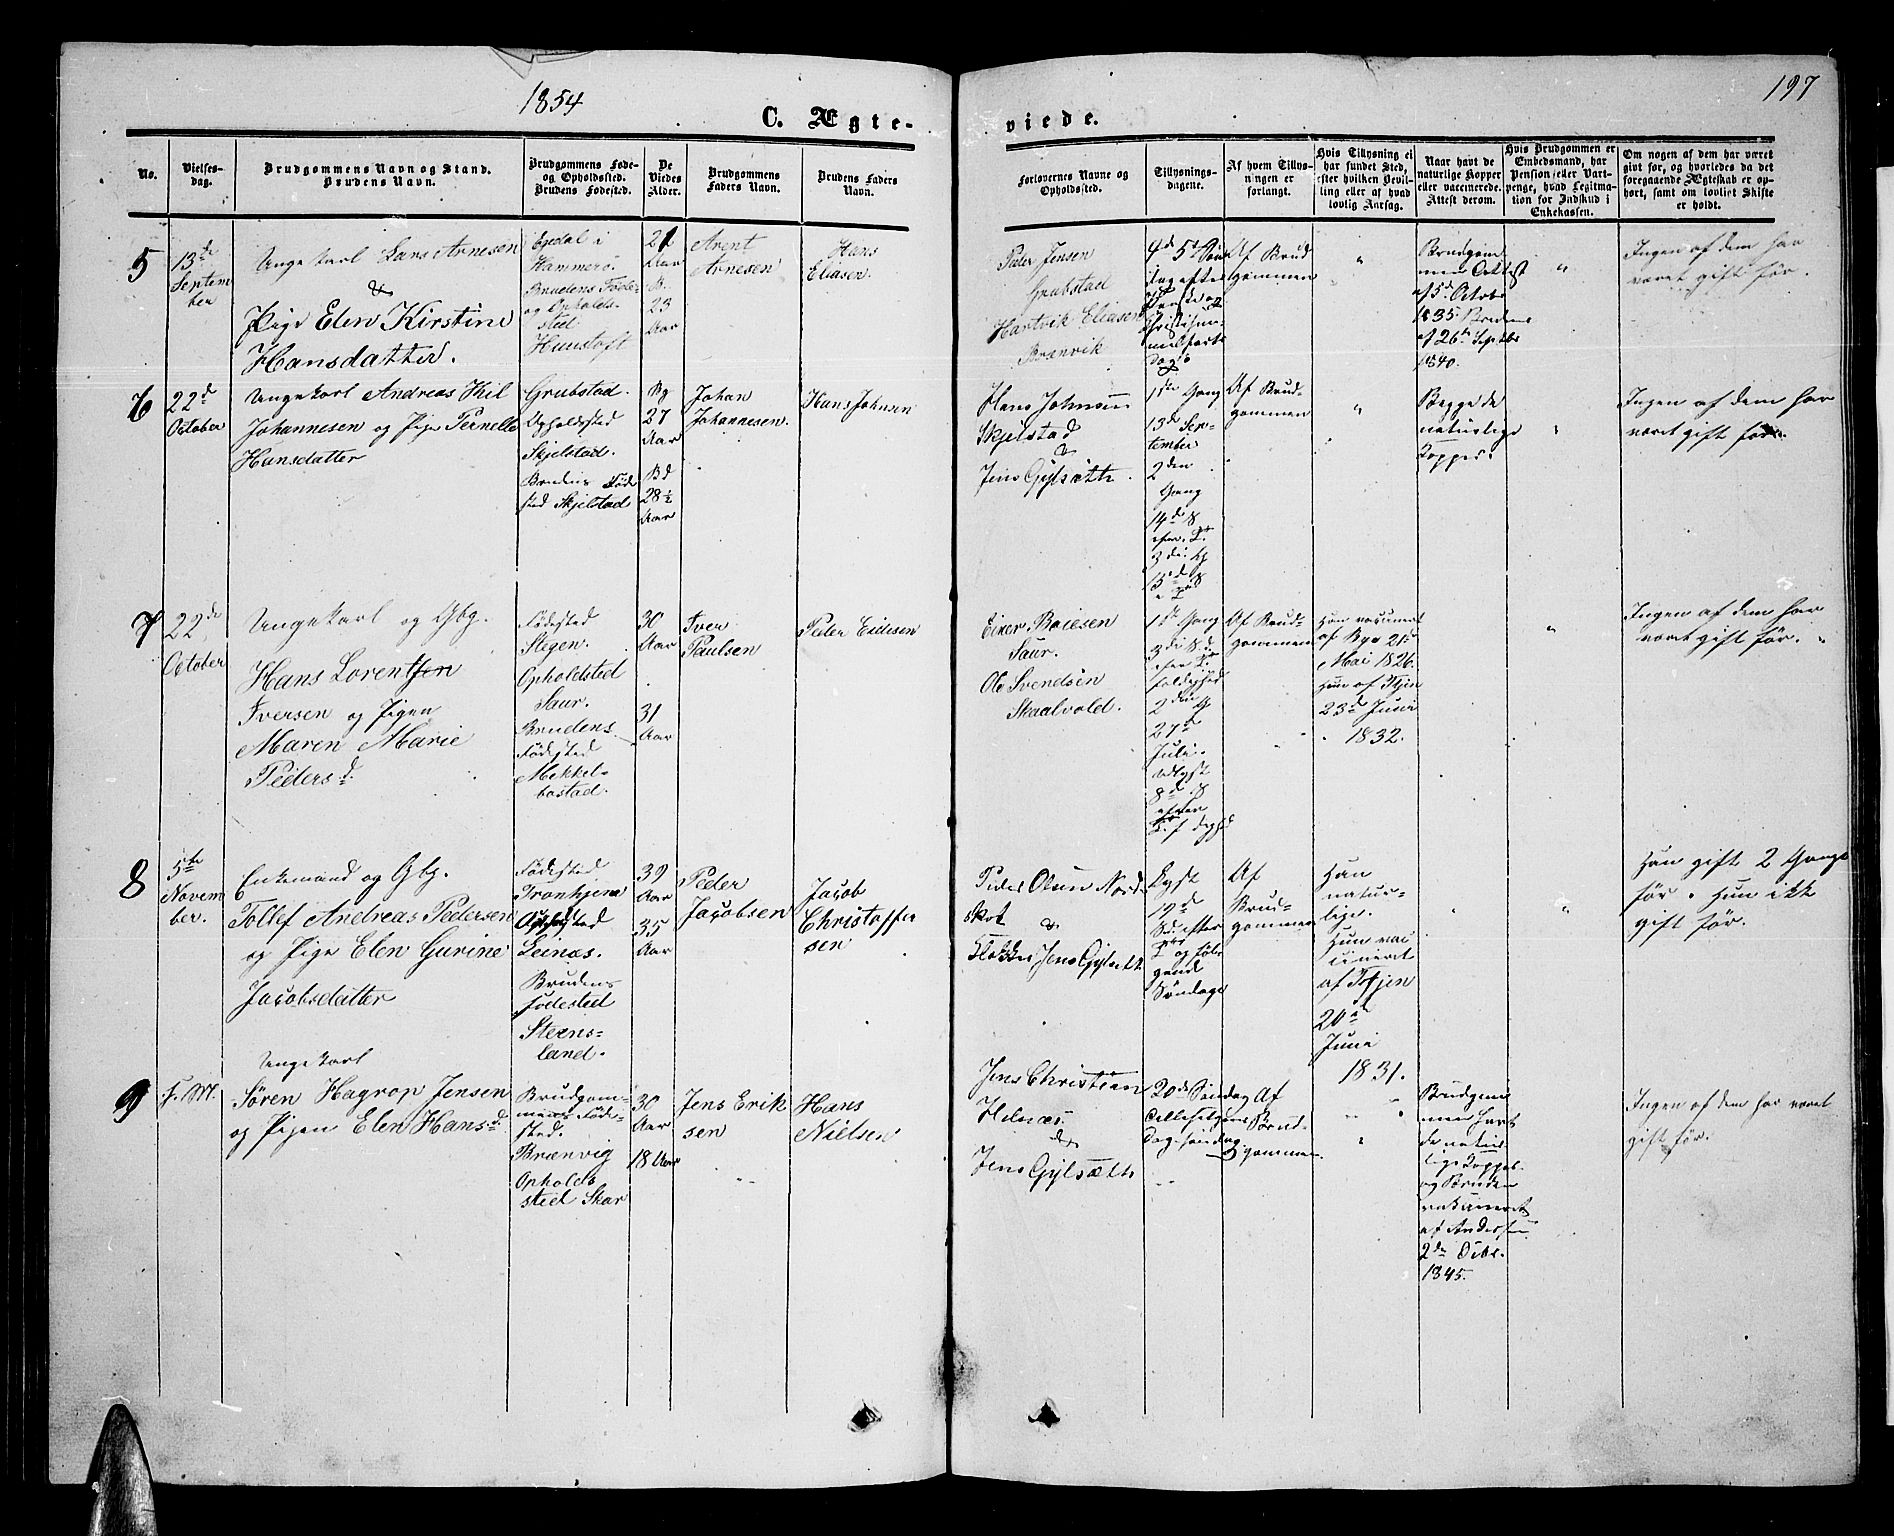 1854
197
C. Ægte-
viede.
No.
Vielses-
dag.
Brudgommens Navn og Stand.
Brudens Navn.
Brudgommens Føde-
og Opholdssted.
Brudens Fødested.
De
Viedes
Alder.
Brudgommens
Faders Navn.
Brudens Faders
Navn.
Forlovernes Navne og
Opholdssted.
Tillysnings-
dagene.
Af hvem Tillys-
ningen er
forlangt.
Hvis Tillysning ei
har fundet Sted,
efter hvilken Bevil-
ling eller af hvad
lovlig Aarsag.
Naar havt de
naturlige Kopper
eller vaccinerede.
Attest derom.
Hvis Brudgommen er
Embedsmand, har
Pension eller Vart-
penge, hvad Legitima-
tion for Indskud i
Enkekassen.
Om nogen af dem har været
givt før, og hvorledes da det
foregaaende Ægteskab er op-
hørt, samt om lovligt Skifte
er holdt.
5
13de
Septem
ber
Ungekarl Lars Arnesen
&
Pige Elen Kirstine
Hansdatter.
Egedal i
Hammerø.
Brudens Føde
og Opholds-
sted
Hunstoft
21
Aar
B.
23
Aar
Arent
Arnesen
Hans
Eliasen.
Peder Jensen
Grubstad
Hartvik Eliasen
Brænvik
4d 5t Søn
dag efter
Paaske og
Christihim-
melfarts
dag
Af Brud
gommen
"
Brudgom
men Attest
af 5d Octobr
1835. Bruden
af 26de Septbr
1840.
"
Ingen af dem har
været gift før.
6
22d
October
Ungekarl Andreas Kil
Johannesen og Pige Pernelle
Hansdatter
Grubstad.
Opholdssted
Skjelstad.
Brudens Føde
sted Skjelstad
Bg
27
Aar
Bd
28½
Aar
Johan
Johannesen.
Hans Johnsen
Hans Johnsen
Skjelstad
&
Jens Gylseth
1ste Gang
13de Sep-
tember
2den
Gang
14d S
efter. T.
3die. G
15d S
Af Brud-
gommen
"
Begge de
naturlige
Kopper.
"
Ingen af dem har
været gift før.
7
22de
October
Ungekarl og Gbg.
Hans Lorentsen
Iversen og Pigen
Maren Marie
Pedersd.
Fødested
Stegen.
Opholdsted
Saur.
Brudens
Fødested
Mekkel-
bostad.
30
Aar
31
Aar
Iver
Paulsen
Peder Eidesen
Einer Boiesen
Saur.
Ole Svendsen
Skaalvold.
1ste Gang
3die S.
efter T.
2den G
27d
Juli.
udlyst
8d S
efter
Af Brud-
gommen
Han vacineret
af Bye 21d
Mai 1826.
Hun af Stjen
23d Juni
1832.
"
Ingen af dem har
været gift før.
8
5te
Novem
ber.
Enkemand og Gbg.
Tollef Andreas Pedersen
og Pige Elen Gurine
Jacobsdatter
Fødested
Tronhjem
Opholdsted
Leinæs.
Brudens
Fødested
Steens-
land.
39
Aar
35
Aar
Peder
Jacobsen
Jacob
Christoffer
sen
Peder Olsen Nord-
skot
&
Klokker Jens Gylseth
Lyst
19d
S. efter
T. og føl-
gende
Søndage
Af
Brud-
gommen
Han
natur-
lige.
Hun vac
cineret
af Stjen
20d
Juni
1831.
"
Han gift 2 Gange
før. Hun ikke
gift før.
9
F. M.
Ungekarl
Søren Hagrop Jensen
og Pigen Elen Hansd.
Brudgom-
mens Føde-
sted.
Brænvig
Opholds
sted Skar
30
Aar
18 Aar
Jens Erik
sen
Hans
Nielsen
Jens Christian
Helnæs
&
Jens Gylseth
20de Søndag
Allehelgens
Dag søndag
Af
Brud-
gommen.
Brudgom
men havt
de natur
lige Kopper
og Bruden
vaksineret
af Andersen
2de Octbr.
1845.
Ingen af dem har været
gift før.